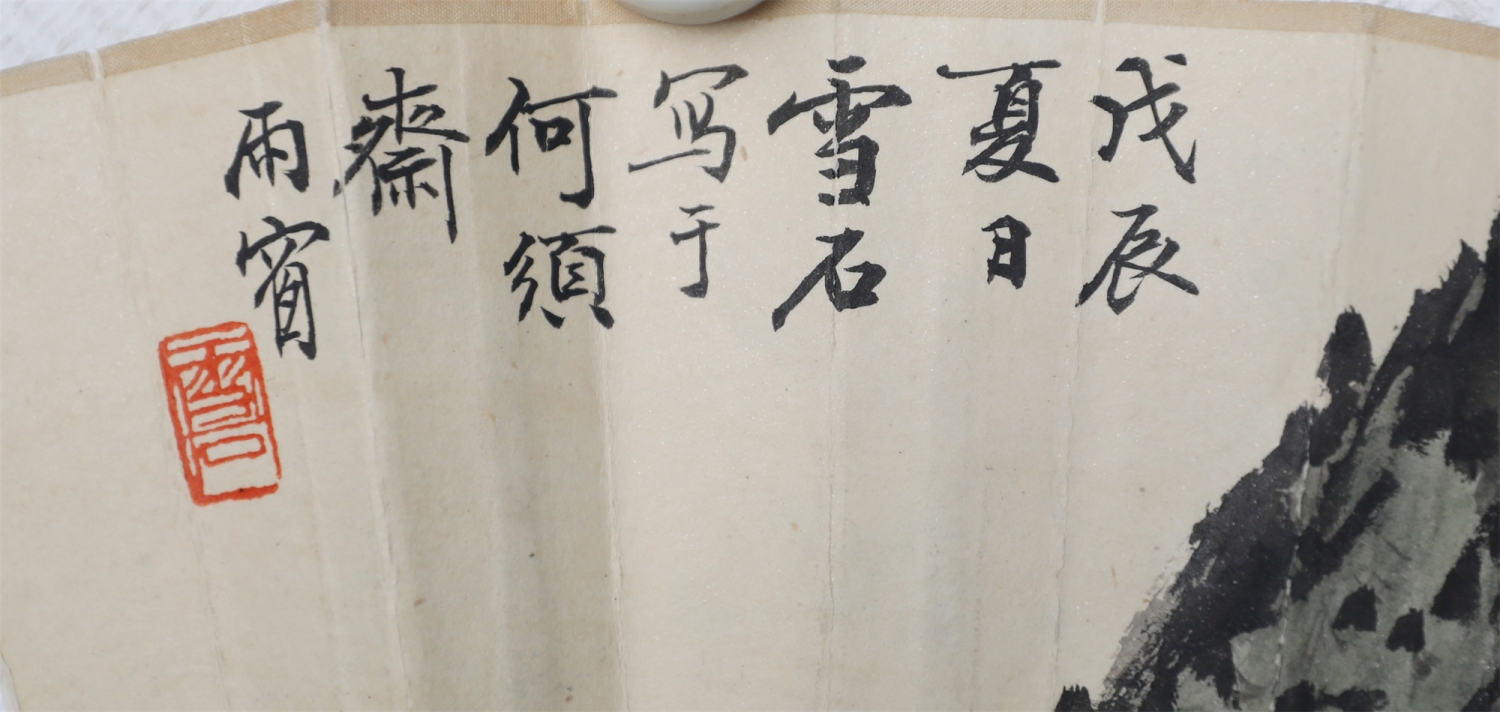 戊辰
夏日
雪石
写于
何須
齋
雨賓
雪石